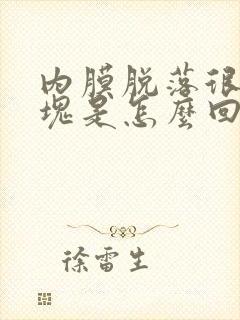 内膜脱落很
塊是怎麼回
徐雷生